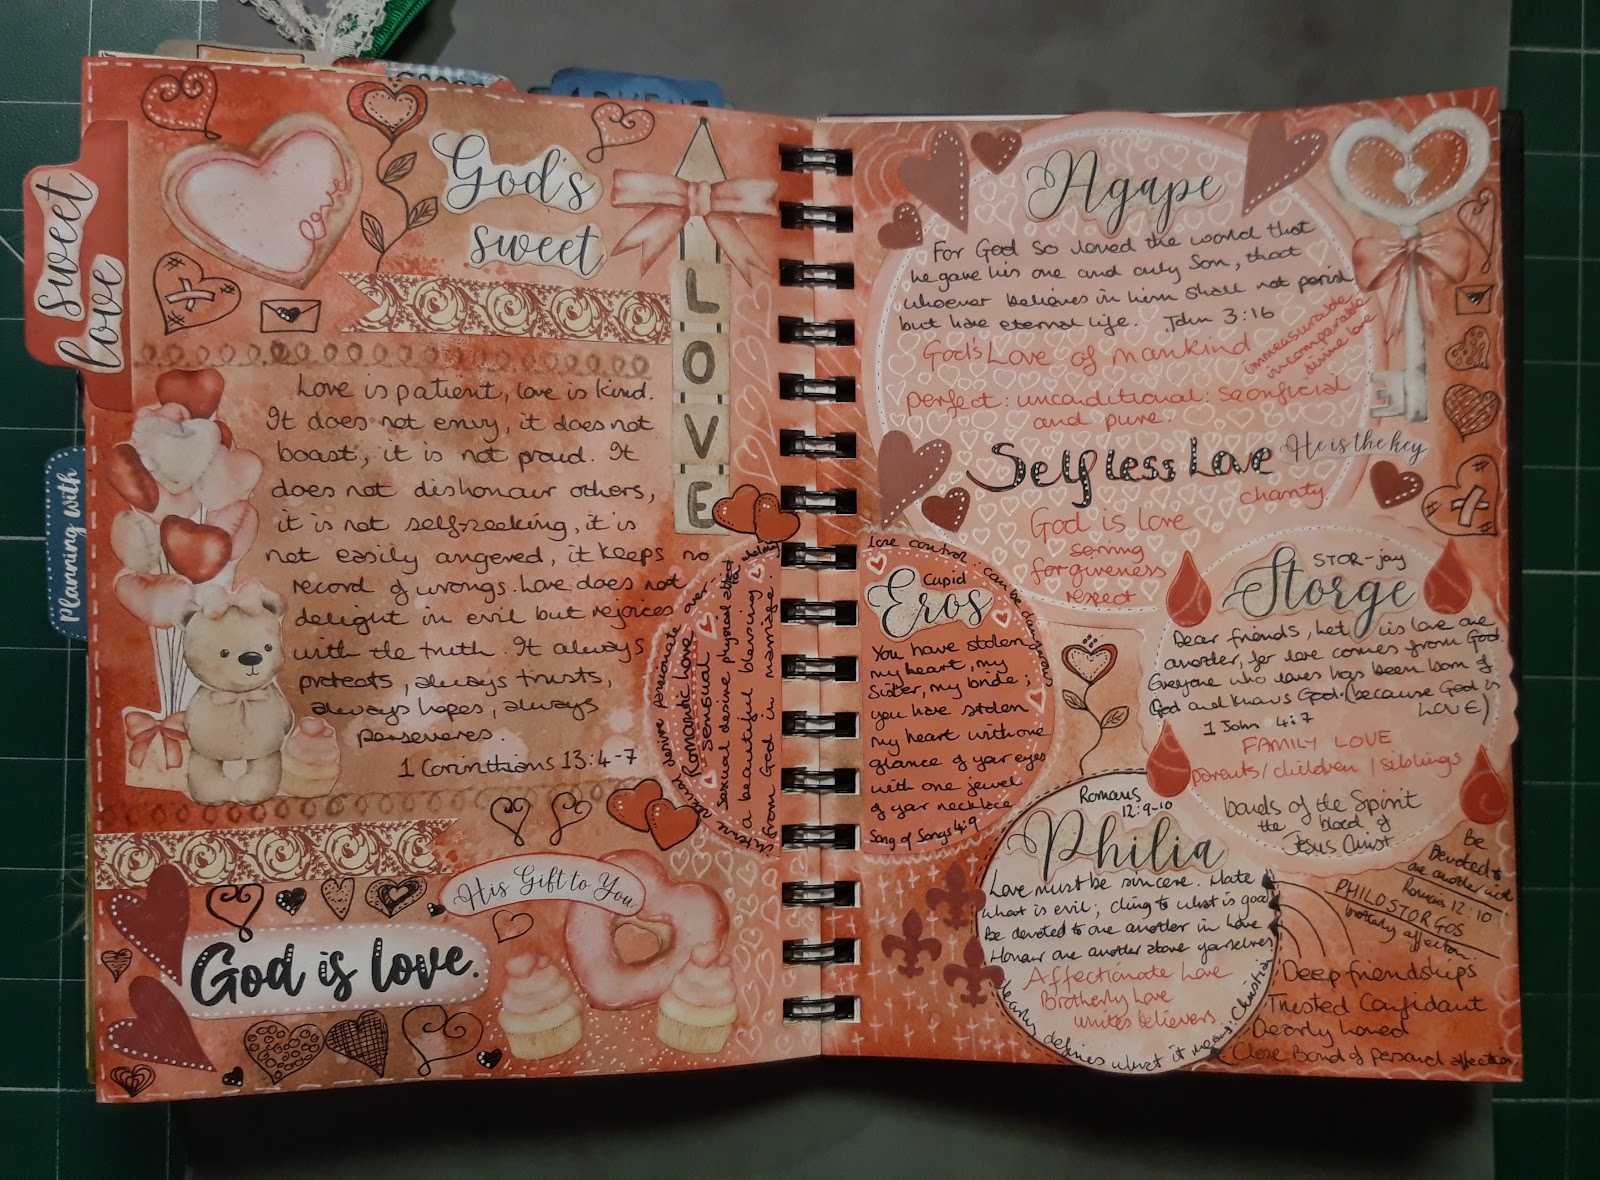 sweet
love
Planning with
love
God's
sweet
LOVE
Love is patient, love is kind.
It does not envy, it does not
boast, it is not proud. It
does not dishonour others,
it is not self-seeking, it is
not easily angered, it keeps no
record of wrongs. Love does not
delight in evil but rejoices
with the truth. It always
protects, always trusts,
always hopes, always
perseveres.
1 Corinthians 13:4-7
His Gift to You
God is love.
Romantic love
sensual
sexual desire physical
a beautiful blessing
from God in marriage.
Agape
For God so loved the world that
he gave his one and only Son, that
whoever believes in him shall not perish
but have eternal life. John 3:16
God's Love of mankind
immeasurable
incomparable
divine love
perfect: unconditional: sacrificial
and pure.
Selfless Love
He is the key
charity
God is love
serving
forgiveness
respect
love control. can be dangerous
Cupid
Eros
You have stolen
my heart, my
Sister, my bride;
you have stolen
my heart with one
glance of your eyes
with one jewel
of your necklace
Song of Songs 4:9
STOR-jay
Storge
Dear friends, let us love one
another, for love comes from God.
Everyone who loves has been born of
God and knows God. (because God is
LOVE)
1 John 4:7
FAMILY LOVE
parents/children/siblings
bonds of the Spirit
the blood of
Jesus Christ
Romans
12:9-10
Philia
Love must be sincere. Hate
what is evil; cling to what is good
Be devoted to one another in love.
Honour one another above yourselves
Affectionate love
Brotherly love
unites believers.
clearly defines what it means: Christian
Be
Devoted to
one another
Romans 12:10
PHILOSTORGOS
brotherly affection
Deep friendships
Trusted Confidant
Dearly loved
Close Bond of personal affection